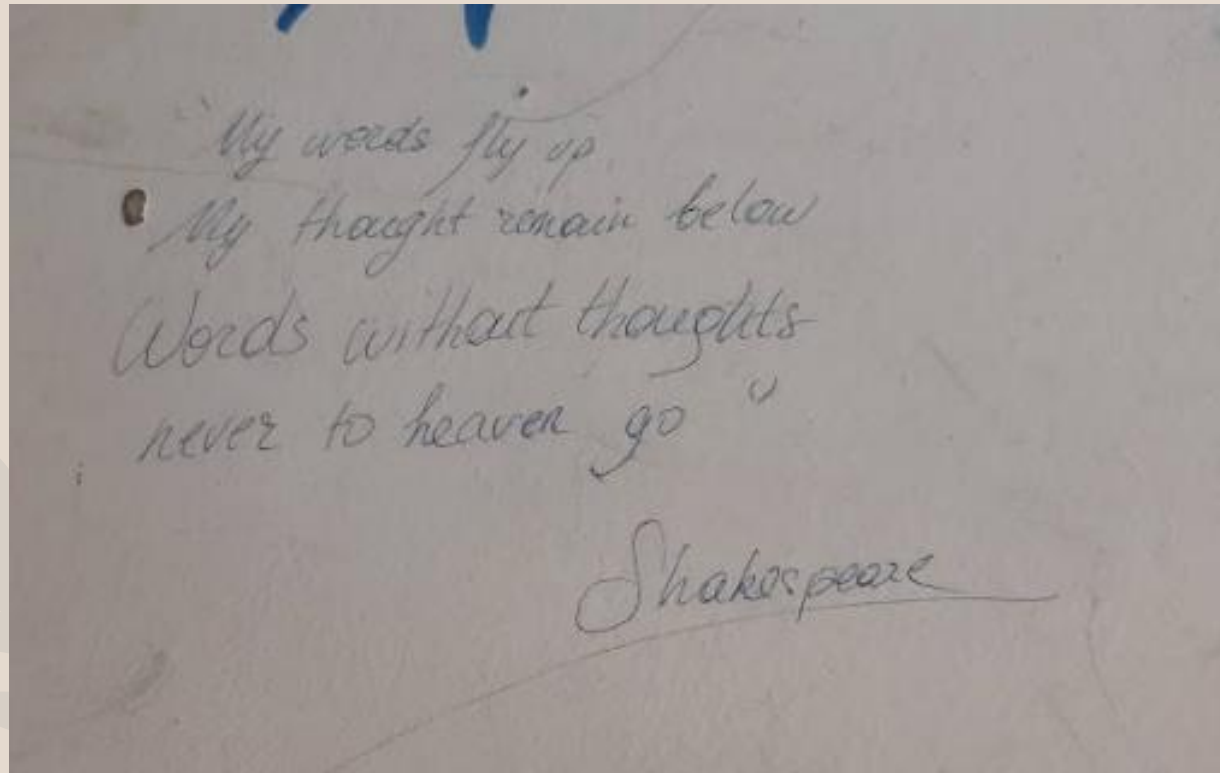 "My words fly up
My thought remain below
Words without thoughts
never to heaven go"
Shakespeare